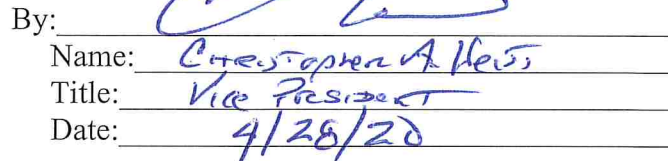 By:
Name: Christopher A.
Title: Vice President
Date: 4/28/20